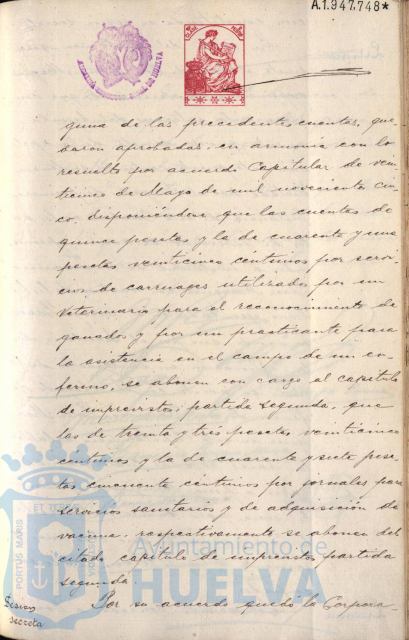 A.1.947.748*
guna de las precedentes cuentas, que
daron aprobadas, en armonia con lo
resuelto por acuerdo Capitular de vein
ticinco de Mayo de mil novecientos cin
co, disponiéndose que las cuentas de
quince pesetas y la de cuarenta y una
pesetas veinticinco centimos por servi
cios de carruages utilizados por un
Veterinario para el reconocimiento de
ganados y por un practicante para
la asistencia en el campo de un en
fermo, se abonen con cargo al capitulo
de imprevistos, partida segunda, que
las de treinta y tres pesetas veinticinco
centimos y la de cuarenta y siete pese
tas cincuenta centimos por jornales para
servicios sanitarios y de adquisición de
vacuna, respectivamente se abonen del
citado capitulo de imprevistos partida
segunda.
Sesion
secreta
Por su acuerdo quedó la Corpora-
PORTUS MARIS
Ayuntamiento de
HUELVA